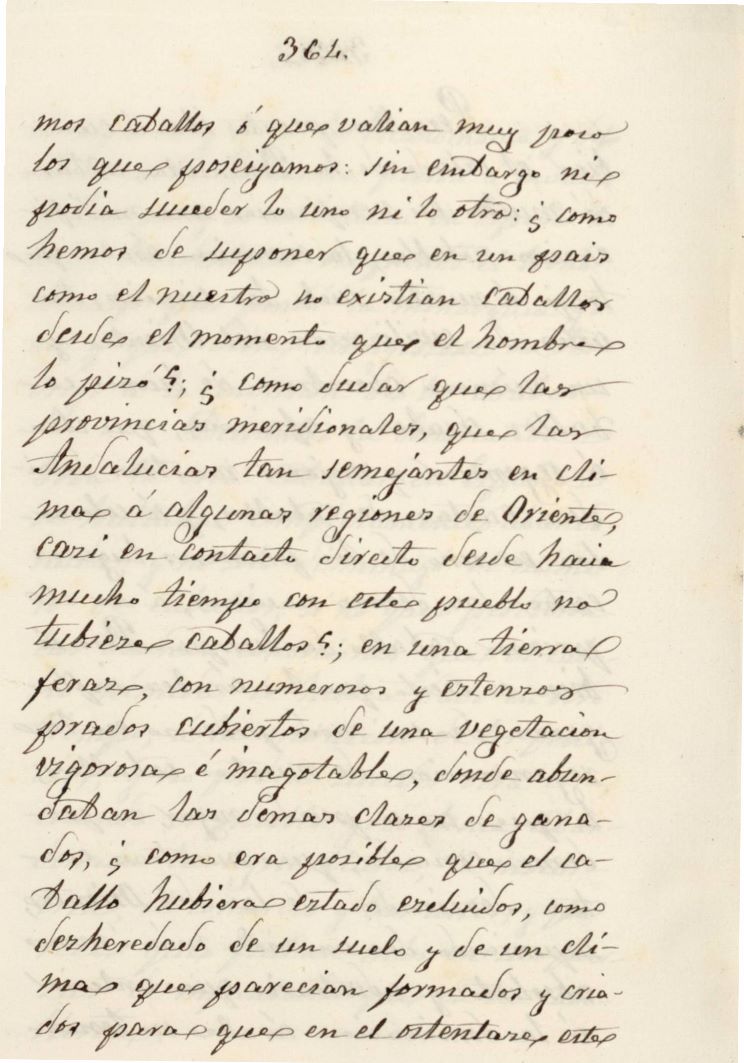 364.
mos caballos ó que valian muy poco
los que poseiyamos: sin embargo ni
podia suceder lo uno ni lo otro: ¿ como
hemos de suponer que en un pais
como el nuestro no existian caballos
desde el momento que el hombre
lo pizó?; ¿ como dudar que las
provincias meridionales, que las
Andalucias tan semejantes en cli-
ma á algunas regiones de Oriente,
casi en contacto directo desde hacia
mucho tiempo con este pueblo no
tubiese caballos?; en una tierra
feraz, con numerosos y estensos
prados cubiertos de una vegetacion
vigorosa é inagotable, donde abun-
daban las demas clases de gana-
dos, ¿ como era posible que el ca-
ballo hubiera estado escluidos, como
desheredado de un suelo y de un cli-
ma que parecian formados y cria-
dos para que en el ostentase este